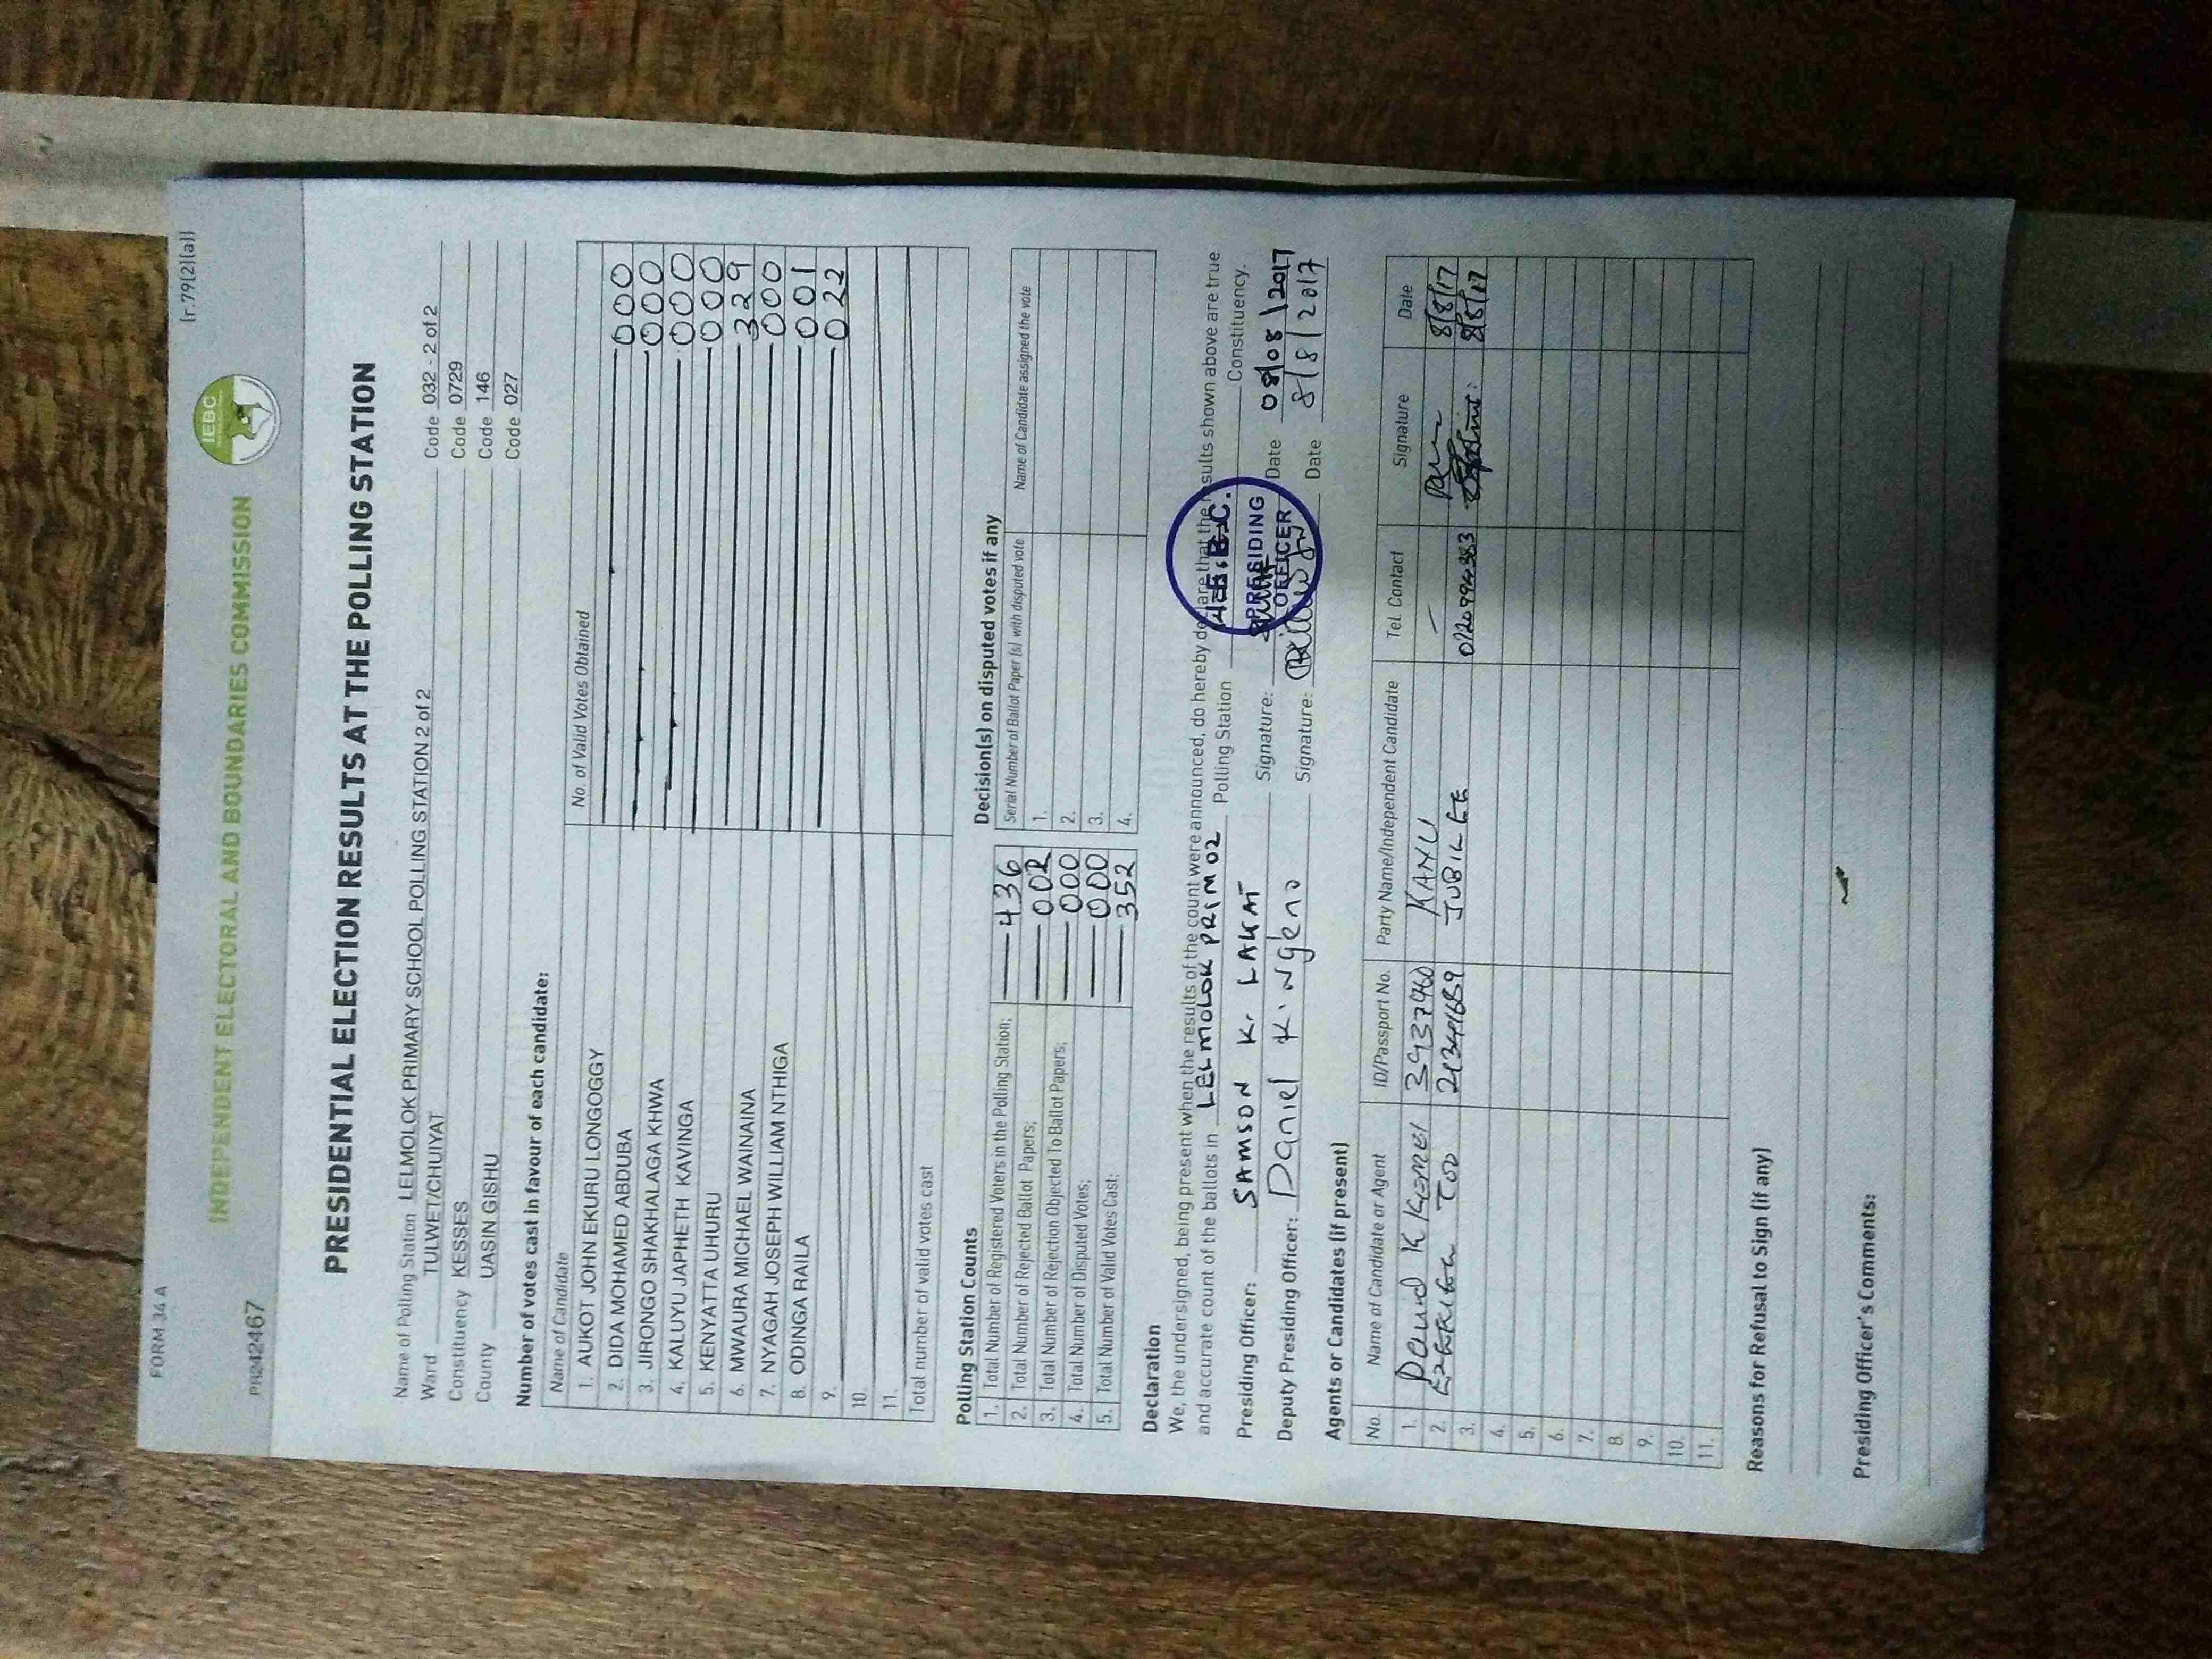 FORM 34 A
[r.79(2)(a)]
PR242467
INDEPENDENT ELECTORAL AND BOUNDARIES COMMISSION
IEBC
PRESIDENTIAL ELECTION RESULTS AT THE POLLING STATION
Name of Polling Station LELMOLOK PRIMARY SCHOOL POLLING STATION 2 of 2 Code 032 - 2 of 2
Ward TULWET/CHUIYAT Code 0729
Constituency KESSES Code 146
County UASIN GISHU Code 027
Number of votes cast in favour of each candidate:
Name of Candidate No. of Valid Votes Obtained
1. AUKOT JOHN EKURU LONGOGGY 000
2. DIDA MOHAMED ABDUBA 000
3. JIRONGO SHAKHALAGA KHWA 000
4. KALUYU JAPHETH KAVINGA 000
5. KENYATTA UHURU 329
6. MWAURA MICHAEL WAINAINA 000
7. NYAGAH JOSEPH WILLIAM NTHIGA 001
8. ODINGA RAILA 022
9.
10.
11.
Total number of valid votes cast
Polling Station Counts
1. Total Number of Registered Voters in the Polling Station; 436
2. Total Number of Rejected Ballot Papers; 002
3. Total Number of Rejection Objected To Ballot Papers; 000
4. Total Number of Disputed Votes; 000
5. Total Number of Valid Votes Cast; 352
Decision(s) on disputed votes if any
Serial Number of Ballot Paper (s) with disputed vote Name of Candidate assigned the vote
1.
2.
3.
4.
Declaration
We, the undersigned, being present when the results of the count were announced, do hereby declare that the results shown above are true
and accurate count of the ballots in LELMOLOK PRIM 02 Polling Station Constituency.
I.E.B.C.
PRESIDING
OFFICER
Presiding Officer: SAMSON K. LAKAT Signature: Date 08/08/2017
Deputy Presiding Officer: Daniel K. Ngeno Signature: Date 8/8/2017
Agents or Candidates (if present)
No. Name of Candidate or Agent ID/Passport No. Party Name/Independent Candidate Tel. Contact Signature Date
1. David K Kemei 3937960 KANU - 8/8/17
2. EZEKIEL TOO JUBILEE 0720994383 8/8/17
3.
4.
5.
6.
7.
8.
9.
10.
11.
Reasons for Refusal to Sign (if any)
Presiding Officer's Comments: